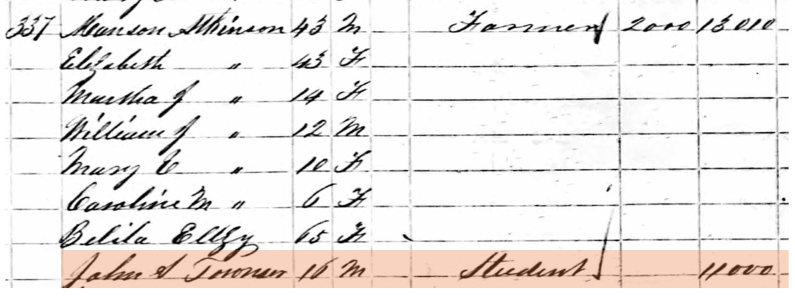 337 Manson Atkinson 43 M Farmer 2000 13010
Elizabeth " 43 F
Martha J " 14 F
William J " 12 M
Mary E " 10 F
Caroline M " 6 F
65 F
John S 16 M Student 11000